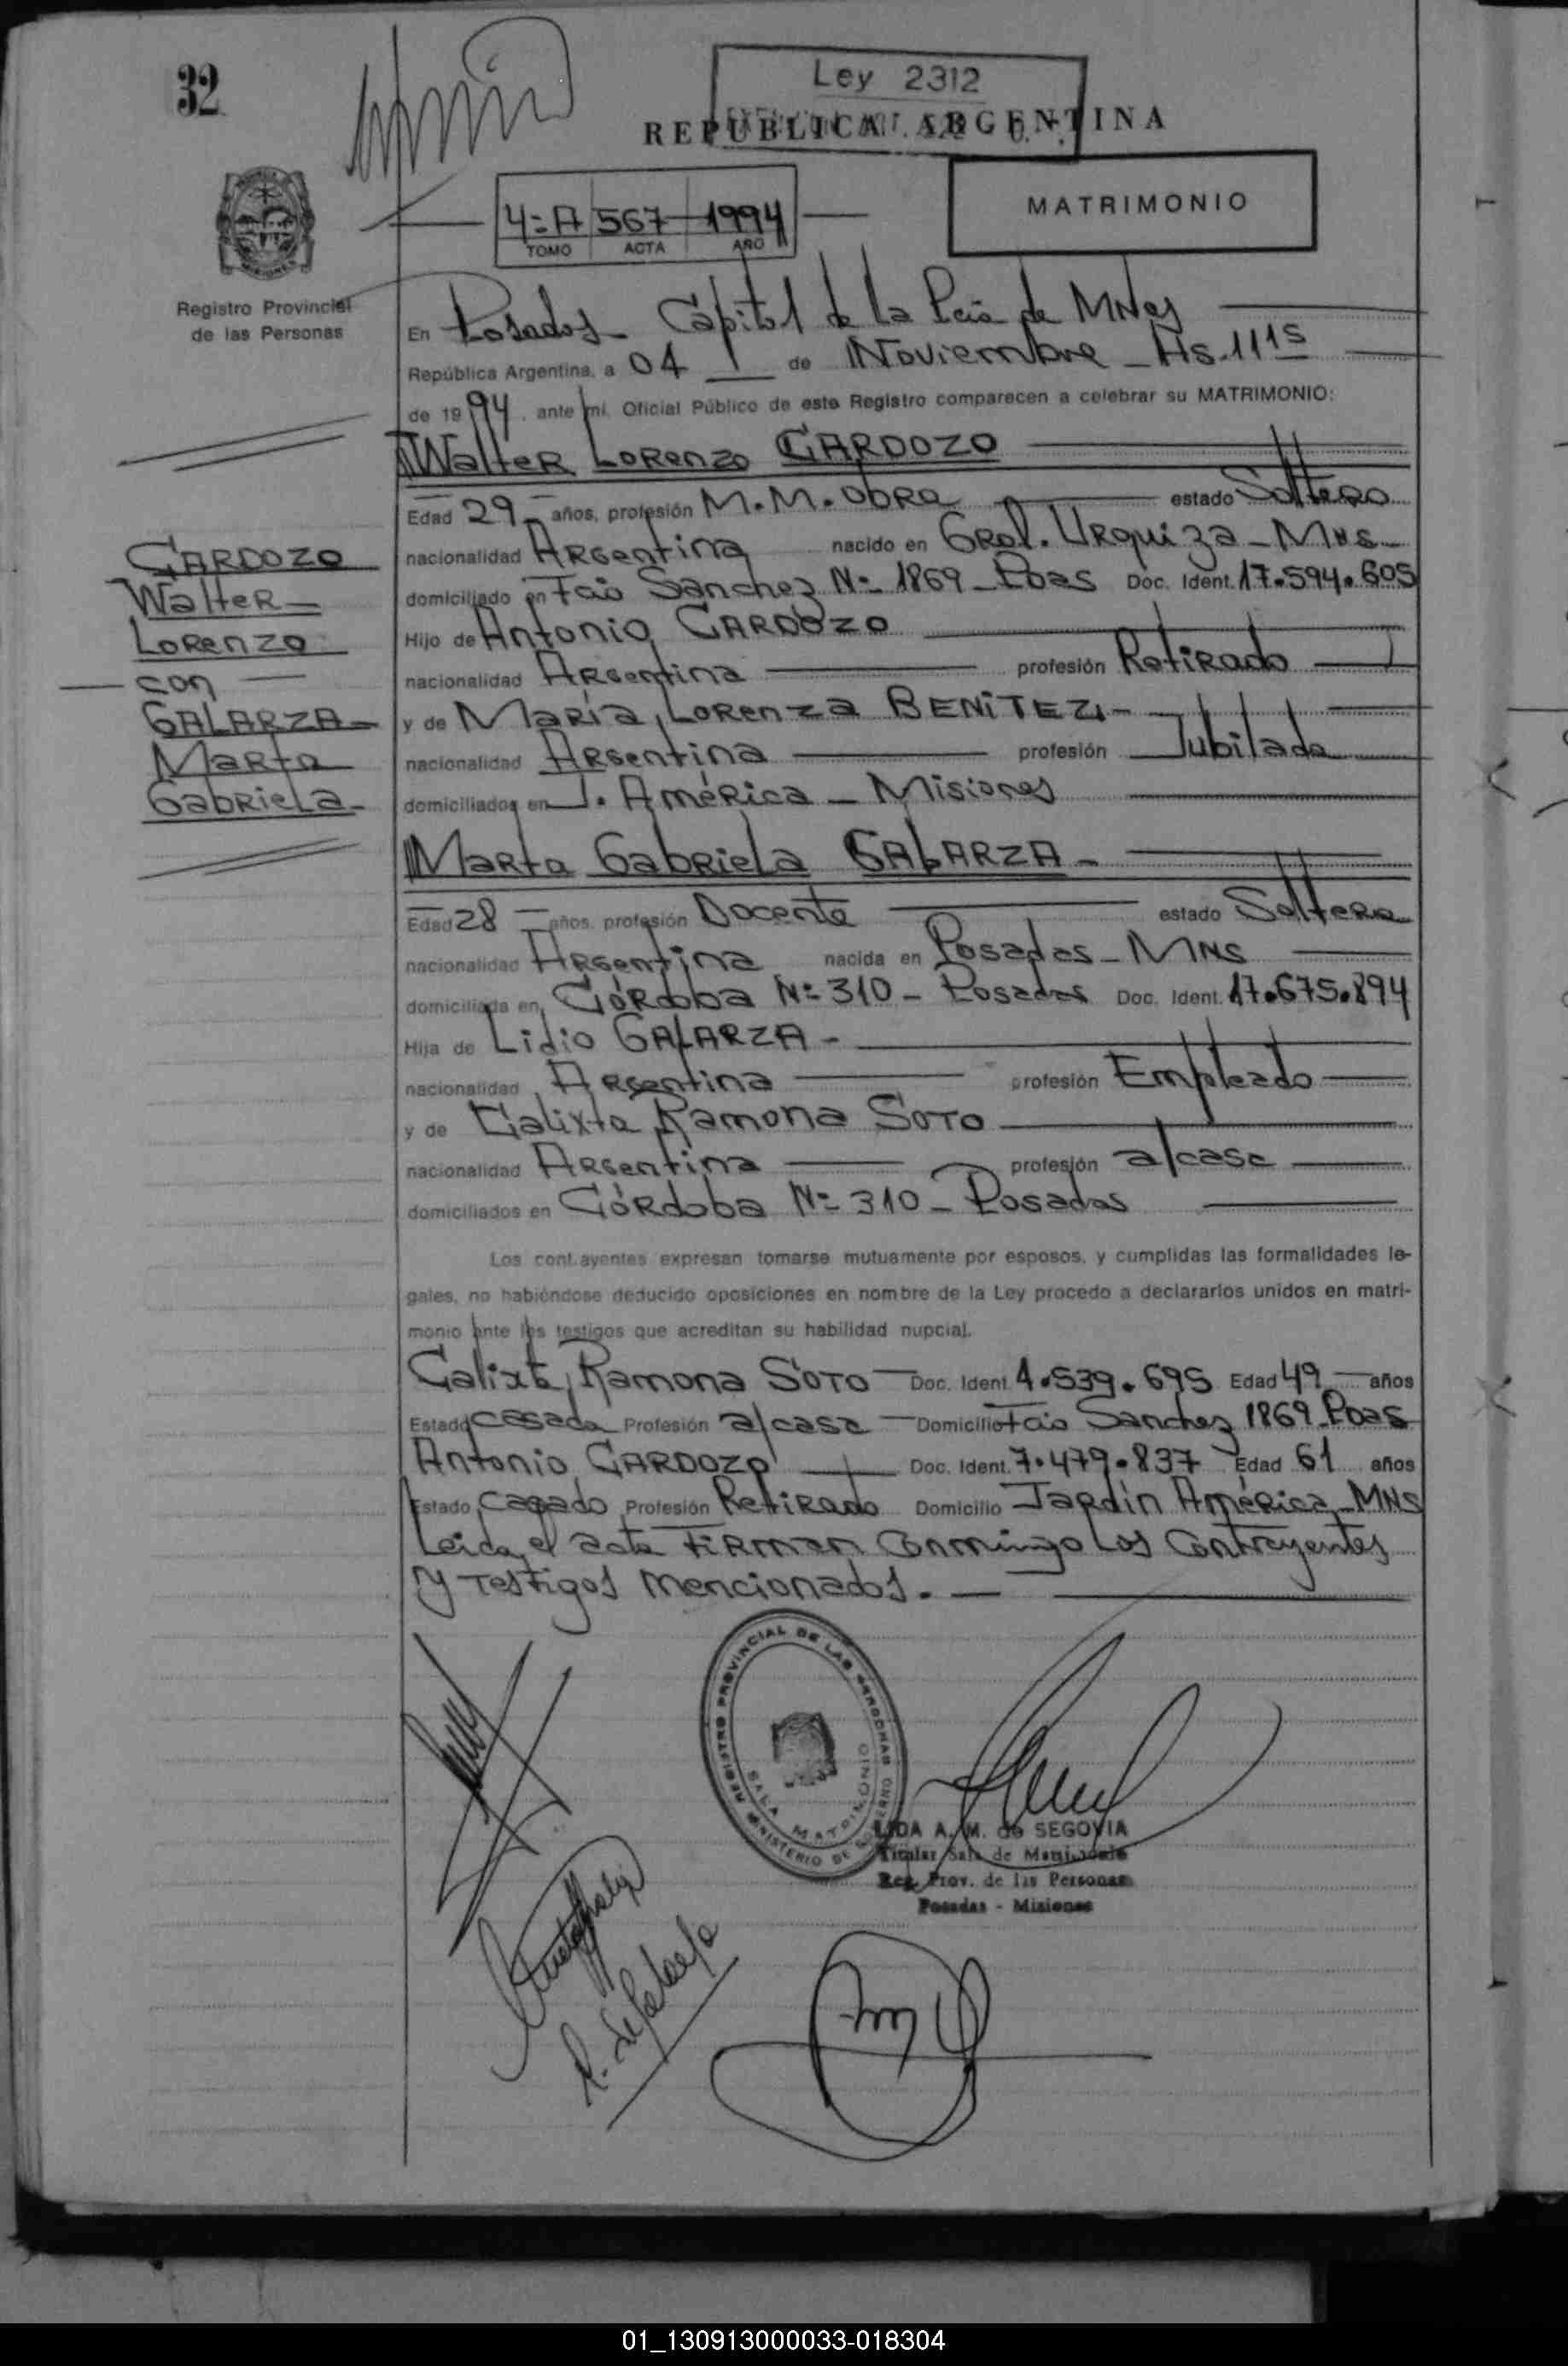 32
Ley 2312
REPUBLICA ARGENTINA
4-A 567 1994
TOMO ACTA AÑO
MATRIMONIO
Registro Provincial
de las Personas
En Posadas - Capital de la Pcia de MNes
República Argentina, a 04 de Noviembre - Hs. 11 15
de 19 94, ante mi, Oficial Público de este Registro comparecen a celebrar su MATRIMONIO:
Walter Lorenzo CARDOZO
Edad 29 - años, profesión M.M. obra estado Soltero
nacionalidad Argentina nacido en Gral. Urquiza - Mns -
domiciliado en Fcio Sanchez Nº 1869 - Pdas Doc. Ident. 17.594.605
Hijo de Antonio CARDOZO
nacionalidad Argentina profesión Retirado
y de María Lorenza BENITEZ -
nacionalidad Argentina profesión Jubilada
domiciliados en J. América - Misiones
CARDOZO
Walter
Lorenzo
con
GALARZA
Marta
Gabriela -
Marta Gabriela GALARZA -
Edad 28 - años, profesión Docente estado Soltera
nacionalidad Argentina nacida en Posadas - MNS
domiciliada en Córdoba Nº 310 - Posadas Doc. Ident. 17.675.894
Hija de Lidio GALARZA -
nacionalidad Argentina profesión Empleado
y de Calixta Ramona SOTO
nacionalidad Argentina profesión a/casa
domiciliados en Córdoba Nº 310 - Posadas
Los contrayentes expresan tomarse mutuamente por esposos, y cumplidas las formalidades le-
gales, no habiéndose deducido oposiciones en nombre de la Ley procedo a declararlos unidos en matri-
monio ante los testigos que acreditan su habilidad nupcial.
Calixta Ramona SOTO - Doc. Ident. 4.539.695 Edad 49 - años
Estado casada Profesión a/casa - Domicilio Fcio Sanchez 1869 - Pdas
Antonio CARDOZO Doc. Ident. 7.479.837 Edad 61 años
Estado Casado Profesión Retirado Domicilio Jardín América - MNS
Leida el acta Firman Conmingo Los Contrayentes
y Testigos Mencionados. -
REGISTRO PROVINCIAL DE LAS PERSONAS
SALA MATRIMONIO
MINISTERIO DE GOBIERNO
LIDA A. M. de SEGOVIA
Titular Sala de Matrimonio
Reg. Prov. de las Personas
Posadas - Misiones
01_130913000033-018304